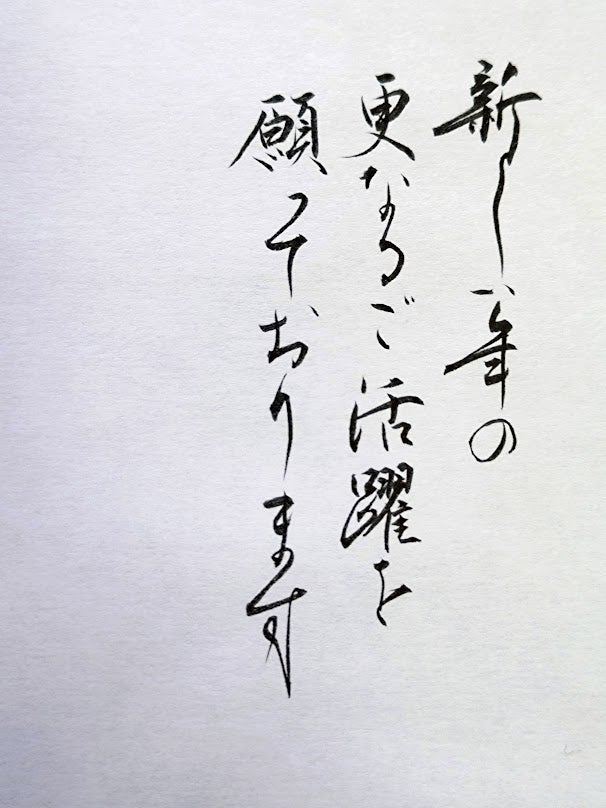 新しい年の
更なるご活躍を
願っております